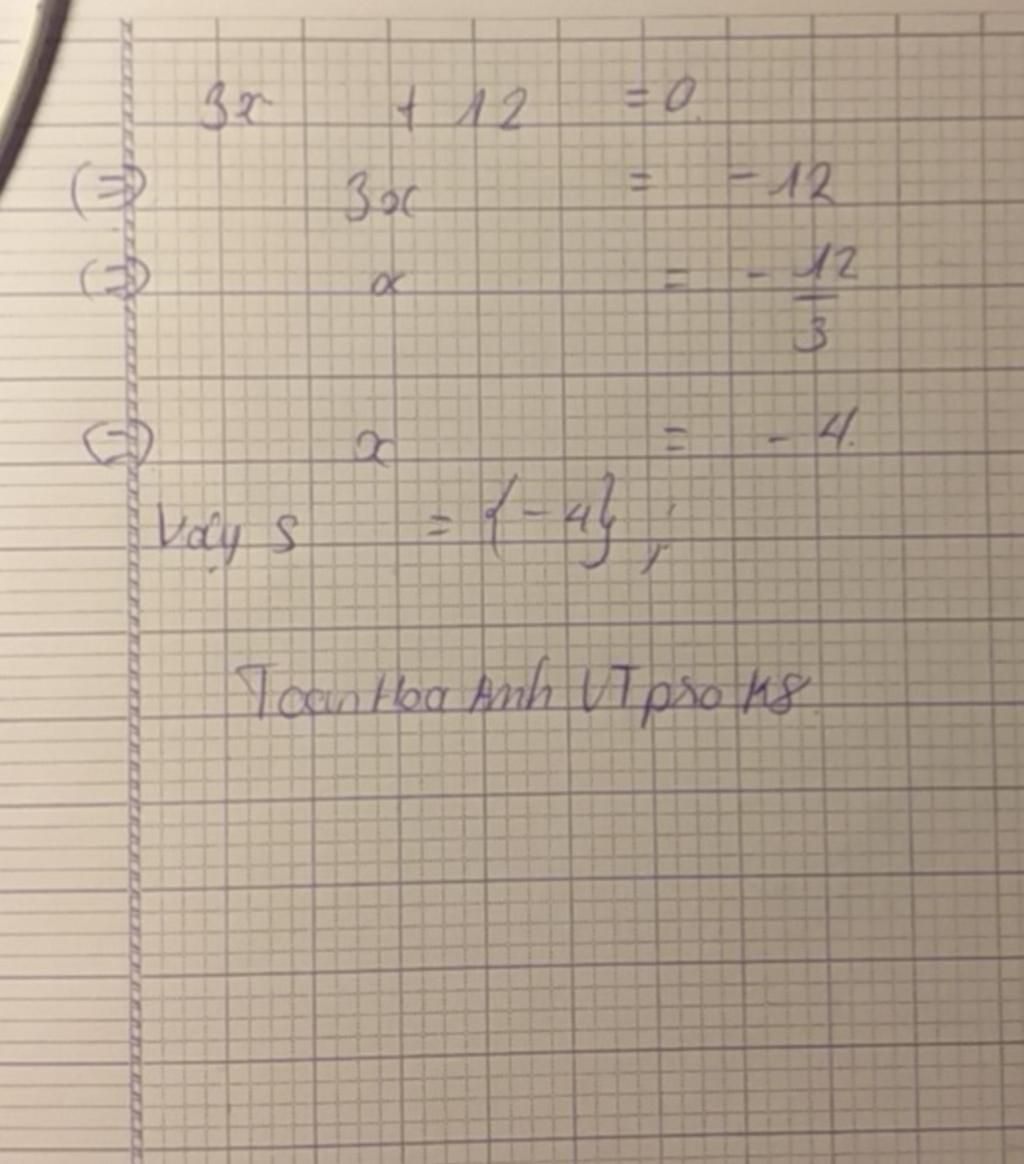 3x + 12 = 0.
(=) 3x = -12
(=) x = - 12/3
(=) x = - 4.
Vậy S = {-4} ;
Toán Hoa Anh VT pro K8